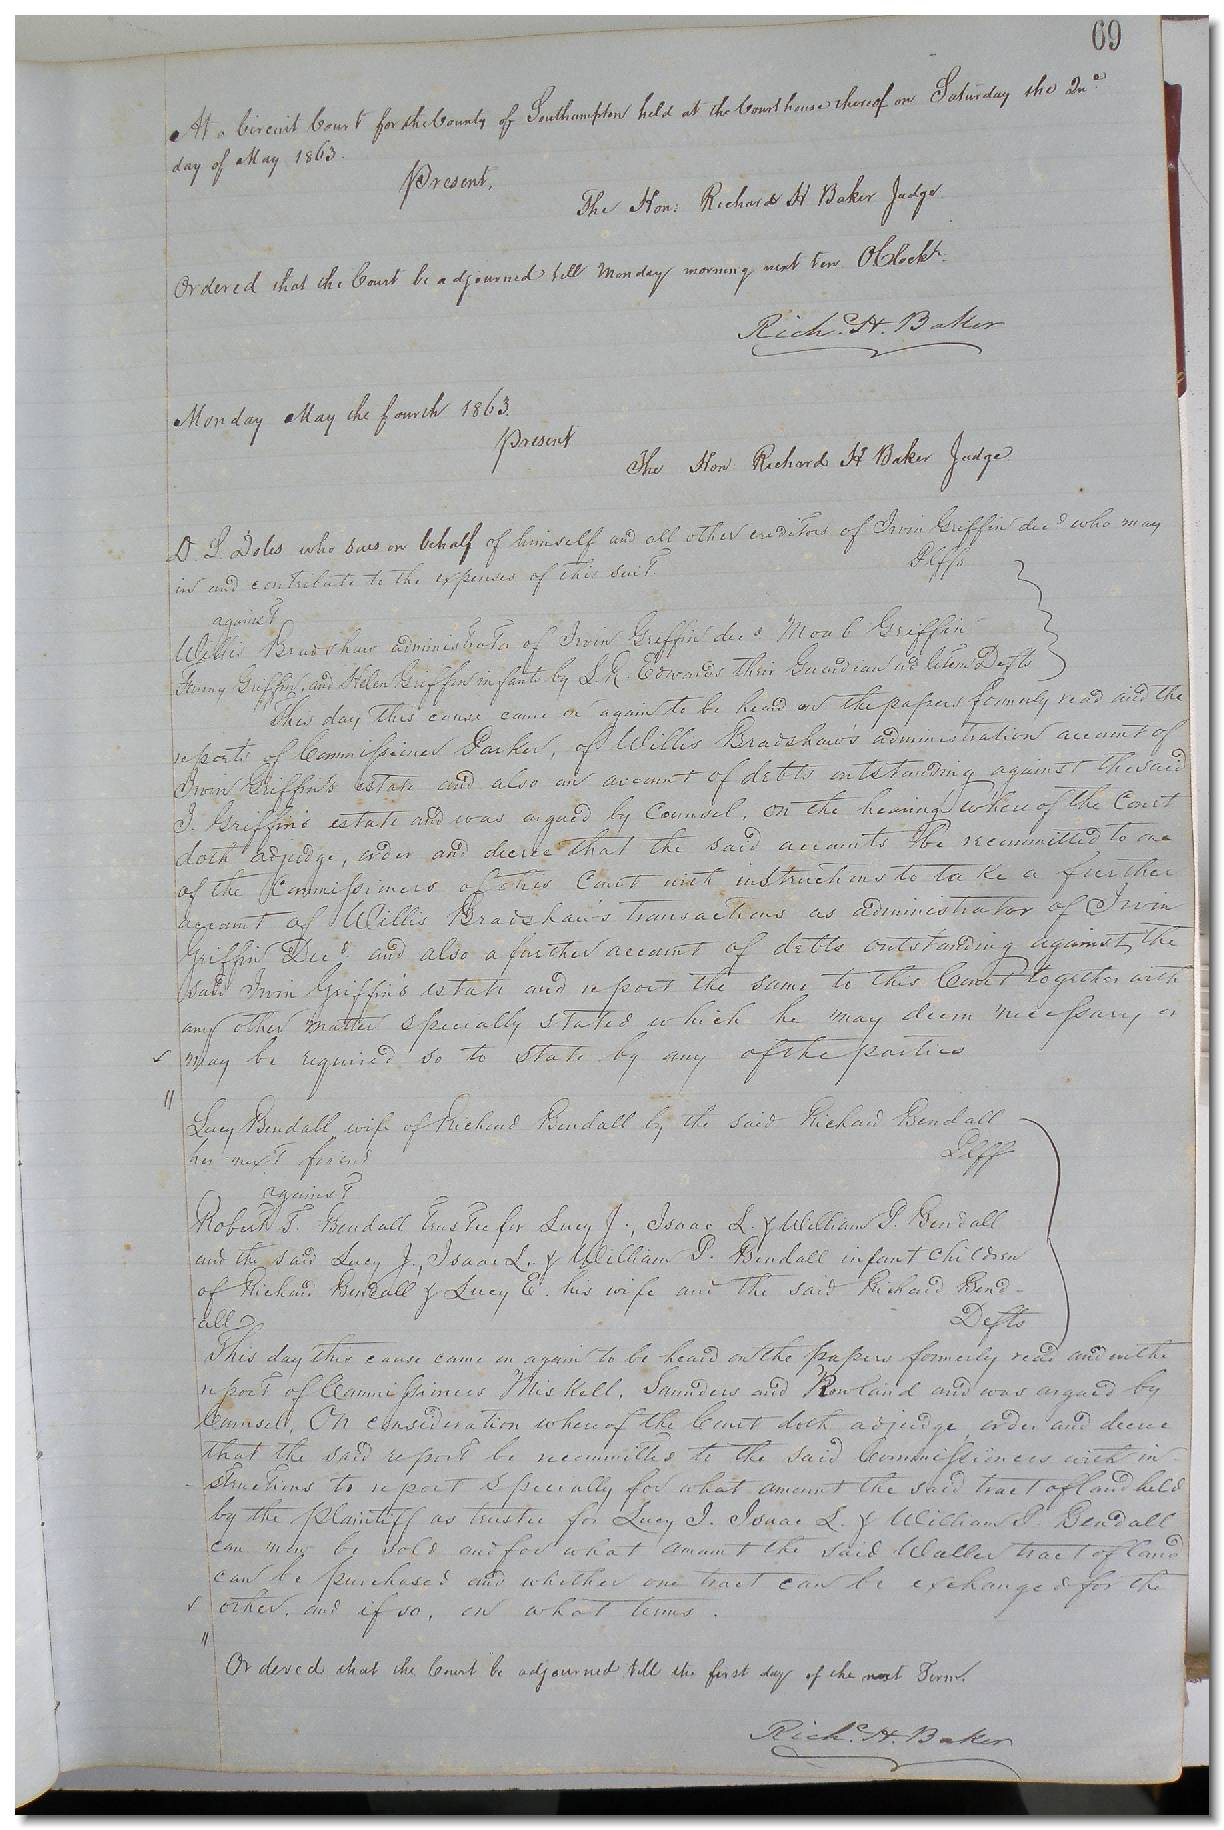 69
At a Circuit Court for the County of Southampton held at the Courthouse thereof on Saturday the 2nd
day of May 1863.
Present,
The Hon: Richard H Baker Judge
Ordered that the Court be adjourned till Monday morning next ten OClock.
Rich.d H. Baker
Monday May the fourth 1863.
Present
The Hon Richard H Baker Judge
D. S. Doles who sues on behalf of himself and all other creditors of Irvin Griffin decd who may
in and contribute to the expenses of this suit Plffs
against
Willis Bradshaw administrator of Irvin Griffin decd Moab Griffin
Fanny Griffin, and Helen Griffin infants by L R. Edwards their Guardian ad litem Defts
This day this cause came on again to be heard on the papers formerly read and the
reports of Commissioner Parker, of Willis Bradshaw's administration account of
Irvin Griffin's estate and also an account of debts outstanding against the said
I. Griffin's estate and was argued by Counsel, on the hearing whereof the Court
doth adjudge, order and decree that the said accounts be recommitted to one
of the Commissioners of this Court with instructions to take a further
account of Willis Bradshaw's transactions as administrator of Irvin
Griffin Decd. and also a further account of debts outstanding against the
said Irvin Griffin's estate and report the same to this Court together with
any other matter specially stated which he may deem necessary or
may be required so to state by any of the parties
"
Lucy Bendall wife of Richard Bendall by the said Richard Bendall
her next friend Plff
against
Robert T. Bendall trustee for Lucy J., Isaac L. & William P. Bendall
and the said Lucy J., Isaac L. & William P. Bendall infant children
of Richard Bendall & Lucy E. his wife and the said Richard Bend-
all Defts
This day this cause came on again to be heard on the papers formerly read and on the
report of Commissioners Miskell, Saunders and Rowland and was argued by
Counsel, On consideration whereof the Court doth adjudge order and decree
that the said report be recommitted to the said Commissioners with in
structions to report specially for what amount the said tract of land held
by the plaintiff as trustee for Lucy J. Isaac L. & William P. Bendall
can now be sold and for what amount the said Waller tract of land
can be purchased and whether one tract can be exchanged for the
other, and if so, on what terms.
"
Ordered that the Court be adjourned till the first day of the next Term.
Rich.d H. Baker